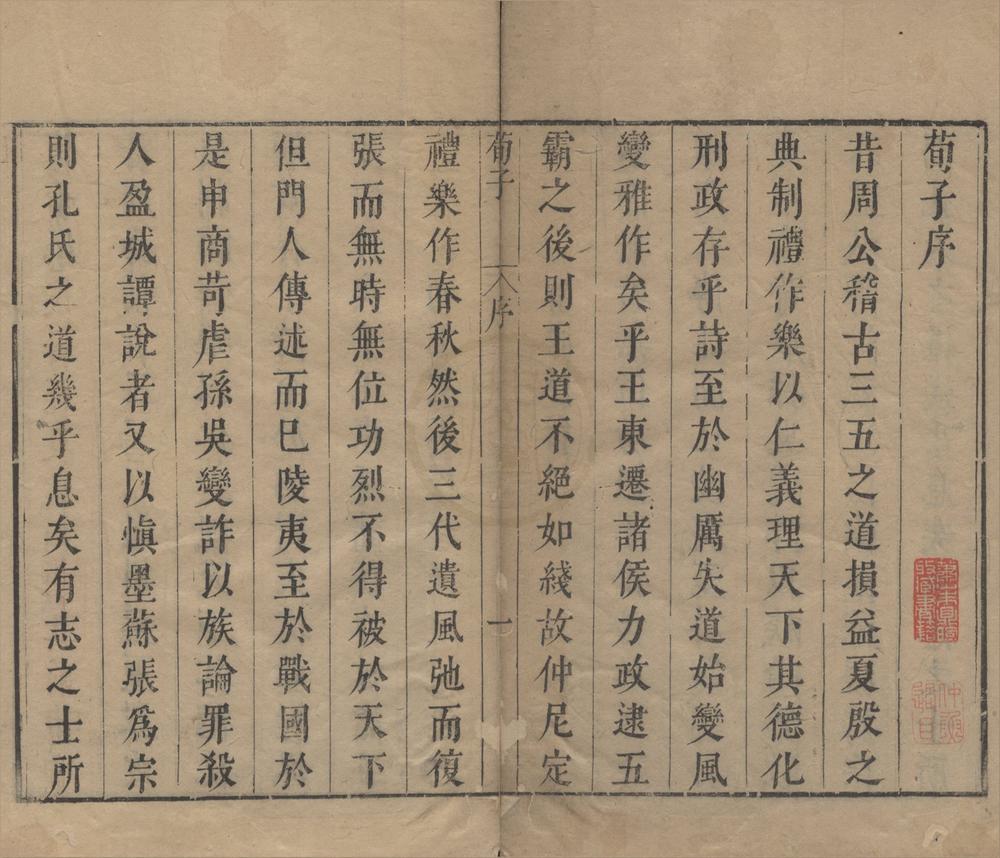 荀子序
昔周公稽古三五之道損益夏殷之
典制禮作樂以仁義理天下其德化
刑政存乎詩至於幽厲失道始變風
變雅作矣乎王東遷諸侯力政逮五
霸之後則王道不絕如綫故仲尼定
荀子 序 一
禮樂作春秋然後三代遺風弛而復
張而無時無位功烈不得被於天下
但門人傳述而巳陵夷至於戰國於
是申商苛虐孫吳變詐以族論罪殺
人盈城譚說者又以慎墨蘇張爲宗
則孔氏之道幾乎息矣有志之士所